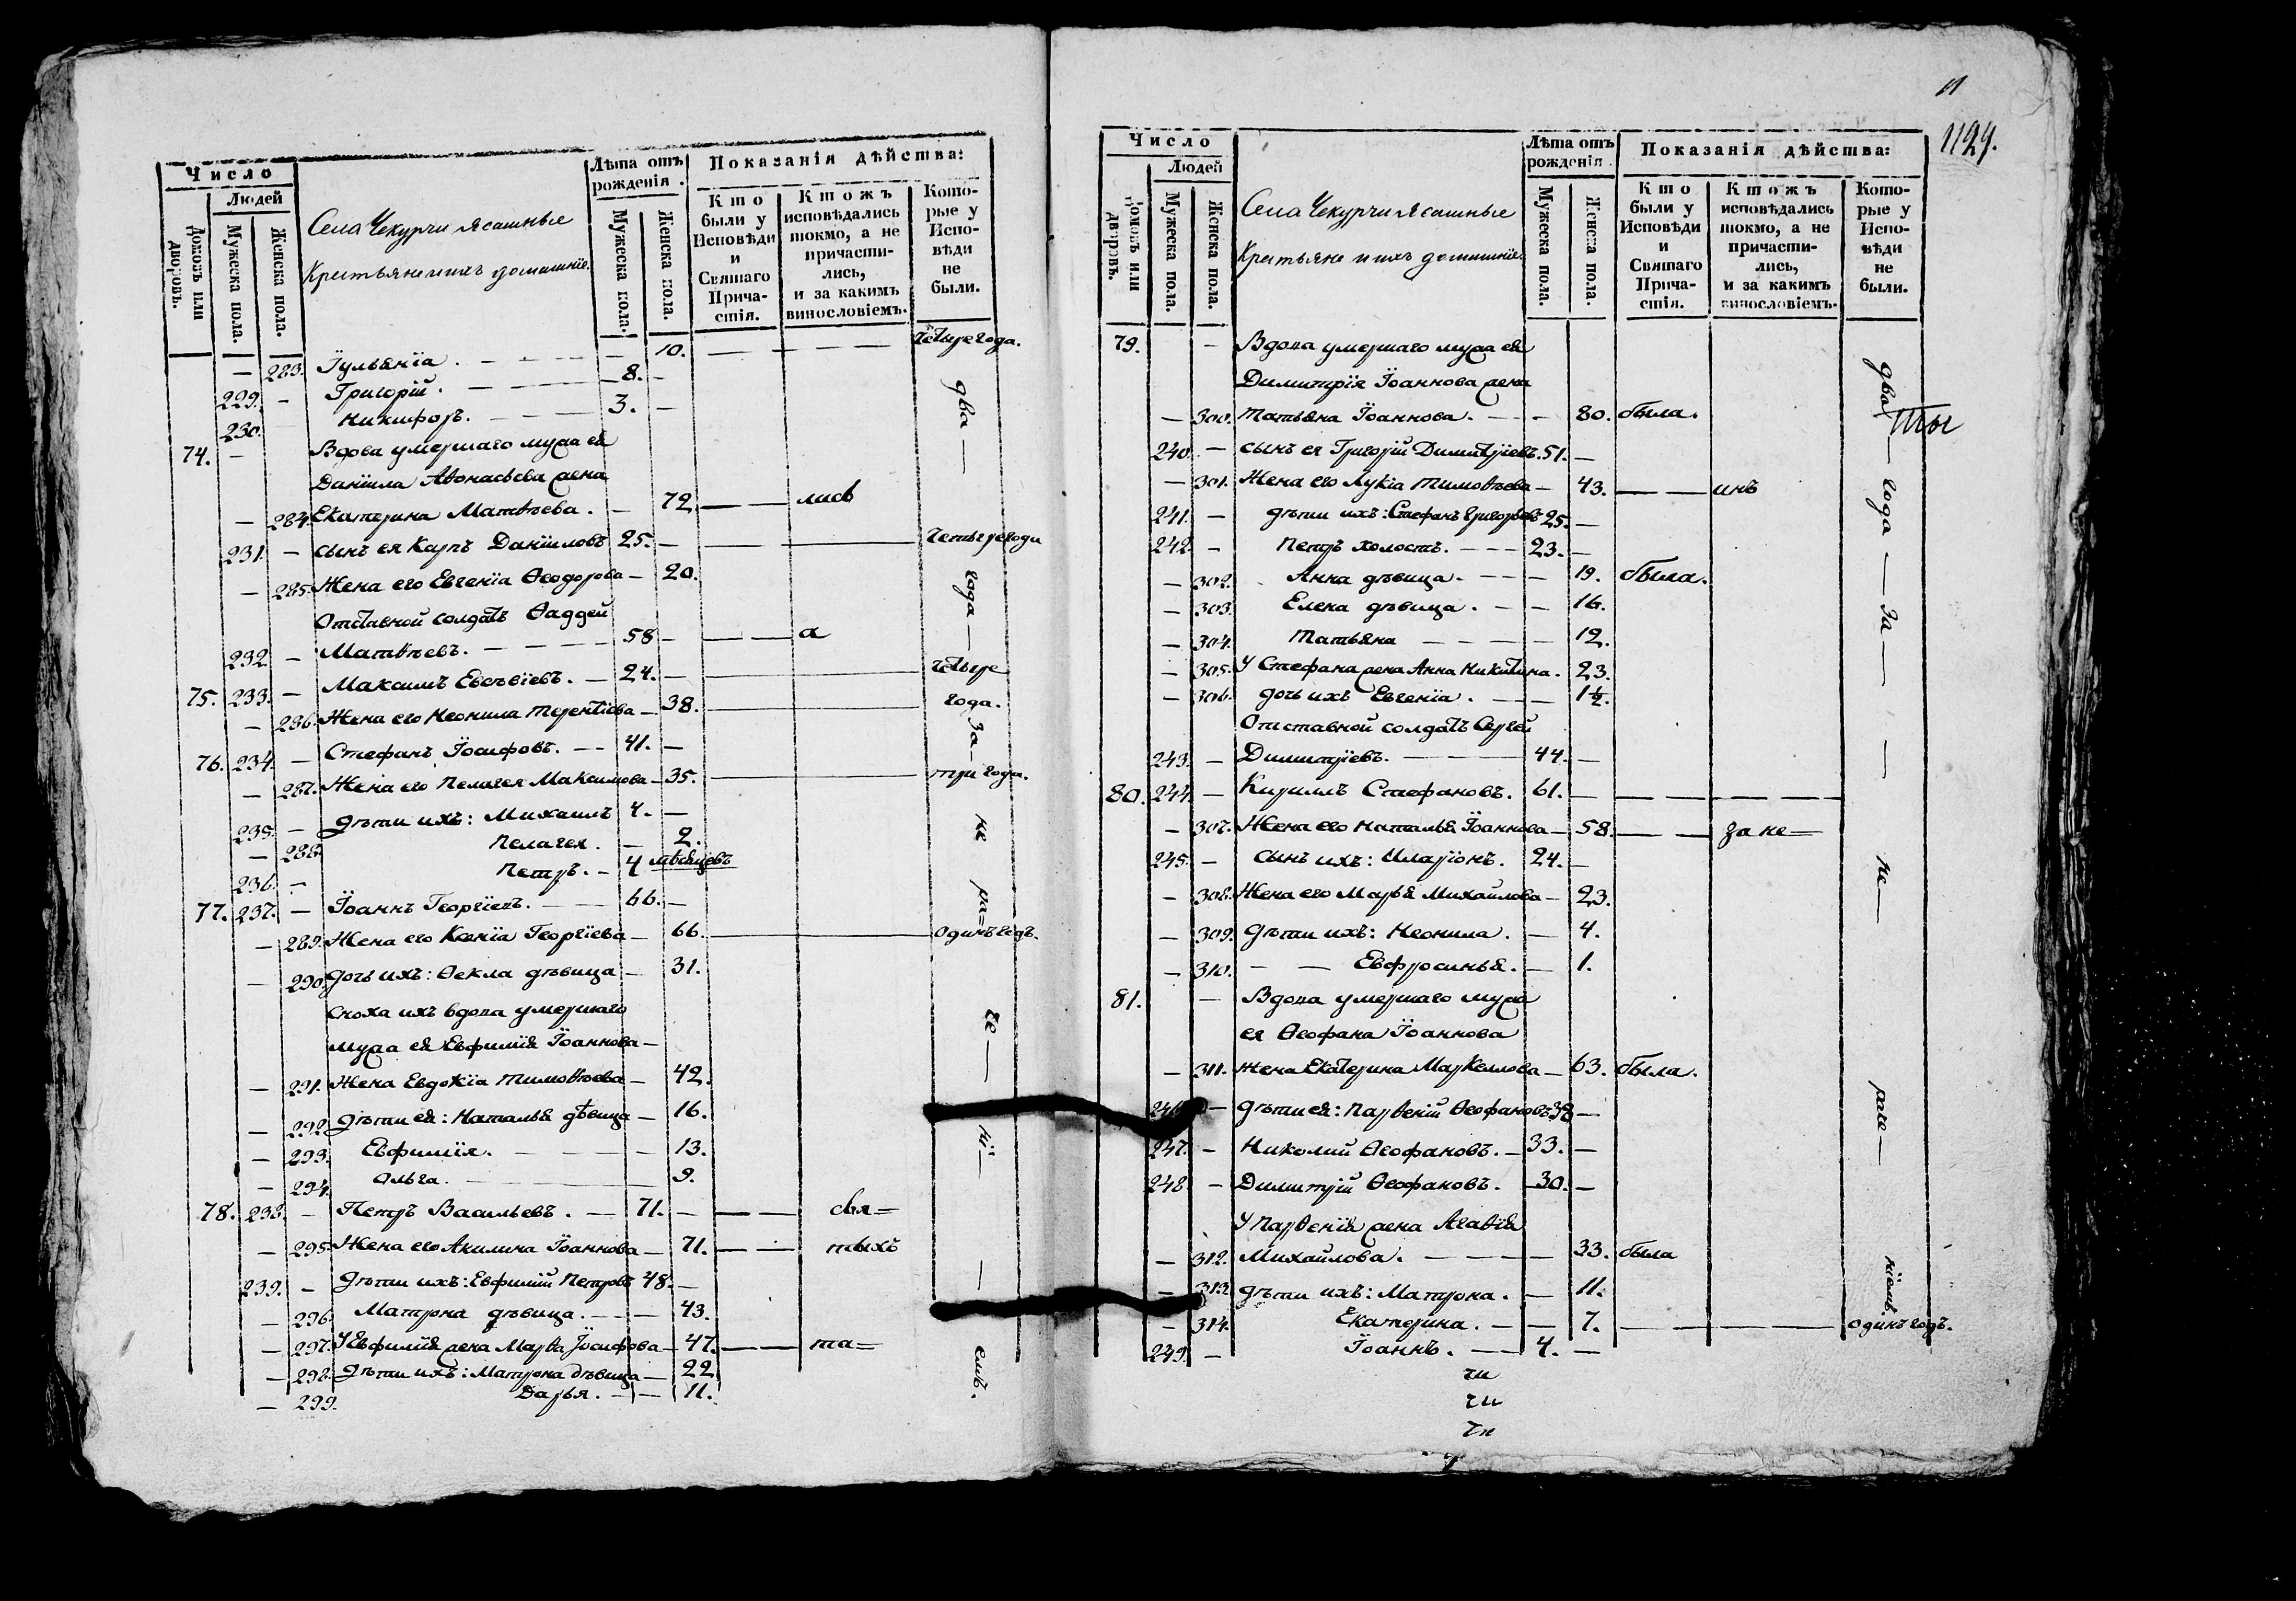 Число
Людей
Домовъ или дворовъ.
Мужеска пола.
Женска пола.
Села Чекурчи Ясашные
Крестьяне и ихъ домашнїе.
Лѣта отъ рожденія.
Мужеска пола.
Женска пола.
Показанія дѣйства:
Кто были у Исповѣди и Святаго Причастія.
Ктожъ исповѣдались токмо, а не причастились, и за какимъ винословіемъ.
Которые у Исповѣди не были.
— 283. Їульянїа. — — 10. — — четыре года.
229. — Григорїй. — 8. —
230. Никифоръ. — 3. —
74. — Вдова умершаго мужа ея
Данїила Аѳонасьева жена
— 284. Екатерина Матвѣева. — 72. — — лись
231. — сынъ ея Карпъ Данїиловъ 25. — — четыре года
— 285. Жена его Евгенїа Ѳеодорова — 20.
Отставной солдатъ Ѳаддей
232. — Матвѣевъ. — 58 — — а
75. 233. — Максимъ Евсѣвїевъ. — 24. — — четыре
— 286. Жена его Неонила Терентїева — 38. — года.
76. 234. — Стефанъ Їосифовъ. — 41. —
— 287. Жена его Пелагея Максимова — 35. — три года.
235. — дѣти ихъ: Михаилъ 4. —
— 288. Пелагея. — 2.
236. — Петръ. — 4 мѣсяцевъ
77. 237. — Їоаннъ Георгїевъ. — 66. —
— 289. Жена его Ксенїа Георгїева — 66. — одинъ годъ.
— 290. дочь ихъ: Ѳекла дѣвица — 31.
сноха ихъ вдова умершаго
мужа ея Евфимїя Їоаннова —
— 291. Жена Евдокїа Тимоѳѣева — 42.
— 292. дѣти ея: Наталья дѣвица — 16.
— 293. Евфимїя. — 13.
— 294. Ольга. — 9.
78. 238. — Петръ Васильевъ. — 71. — — свя=
— 295. Жена его Акилина Їоаннова — 71. — — тыхъ
239. — дѣти ихъ: Евфимїй Петровъ 48. —
— 296. Матрона дѣвица. — 43.
— 297. У Евфимїя жена Марѳа Їосифова — 47. — — та=
— 298. дѣти ихъ: Матрона дѣвица — 22
— 299. Дарья. — 11.
два — года — за — не ра= че — нї — емъ.
11
1129.
Число
Людей
Домовъ или дворовъ.
Мужеска пола.
Женска пола.
Села Чекурчи Ясашные
Крестьяне и ихъ домашнїе
Лѣта отъ рожденія.
Мужеска пола.
Женска пола.
Показанія дѣйства:
Кто были у Исповѣди и Святаго Причастія.
Ктожъ исповѣдались токмо, а не причастились, и за какимъ винословіемъ.
Которые у Исповѣди не были.
79. — Вдова умершаго мужа ея
Димитрїя Їоаннова жена
— 300. Татьяна Їоаннова. — 80. была.
240. — сынъ ея Григорїй Димитрїевъ. 51. —
— 301. Жена его Лукїа Тимоѳѣева — 43. — — инъ
241. — дѣти ихъ: Стефанъ Григорьевъ 25. —
242. — Петръ холостъ. — 23. —
— 302. Анна дѣвица. — 19. была.
— 303. Елена дѣвица. — 16.
— 304. Татьяна — 12.
— 305. У Стефана жена Анна Никитина. 23.
— 306. дочь ихъ Евгенїа. — 1½.
Отставной солдатъ Сергей
243. — Димитрїевъ. — 44. —
80. 244. — Кирилъ Стефановъ. 61. — — —
— 307. Жена его Наталья Їоаннова — 58. — — за не=
245. — сынъ ихъ: Иларїонъ. 24. —
— 308. Жена его Марья Михайлова — 23.
— 309. дѣти ихъ: Неонила. — 4.
— 310. — — Евфросинья. — 1.
81. — Вдова умершаго мужа
ея Ѳеофана Їоаннова
— 311. Жена Екатерина Маркелова — 63. была.
246. — дѣти ея: Парѳенїй Ѳеофановъ 38 —
247. — Николай Ѳеофановъ. — 33. —
248. — Димитрїй Ѳеофановъ. 30. —
У Парѳенїя жена Агаѳїя
— 312. Михайлова. — 33. была
— 313. дѣти ихъ: Матрона. — 11.
— 314. Екатерина. — 7. — — одинъ годъ.
249. — Їоаннъ. — 4. —
два — года — за — — не — раче — нїемъ.
ты
чи
чи